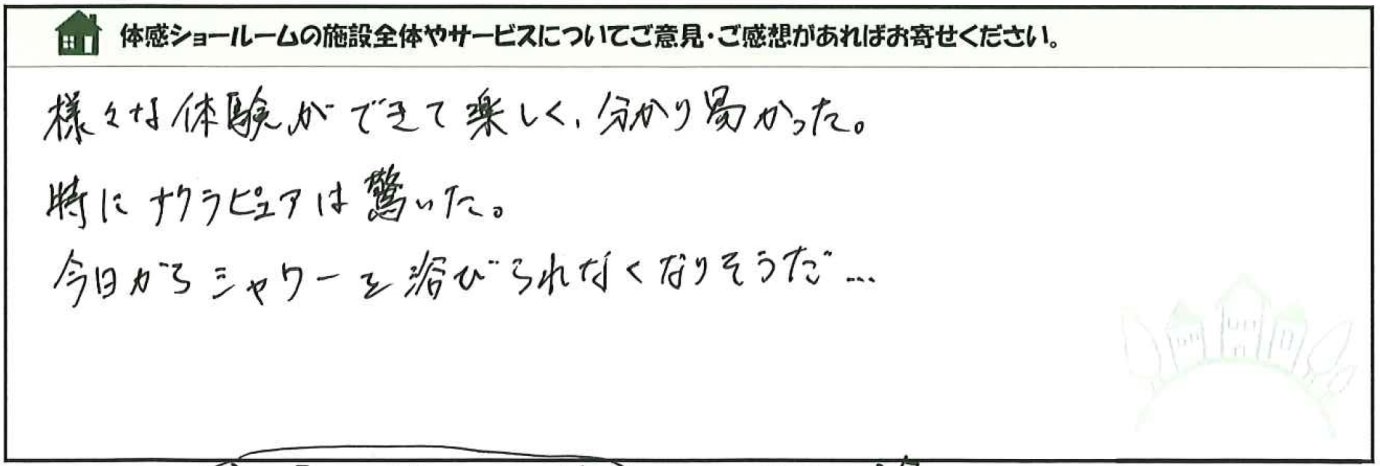 体感ショールームの施設全体やサービスについてご意見・ご感想があればお寄せください。
様々な体験ができて楽しく、分かり易かった。
時にナクラピュアは驚いた。
今日からシャワーを浴びられなくなりそうだ…